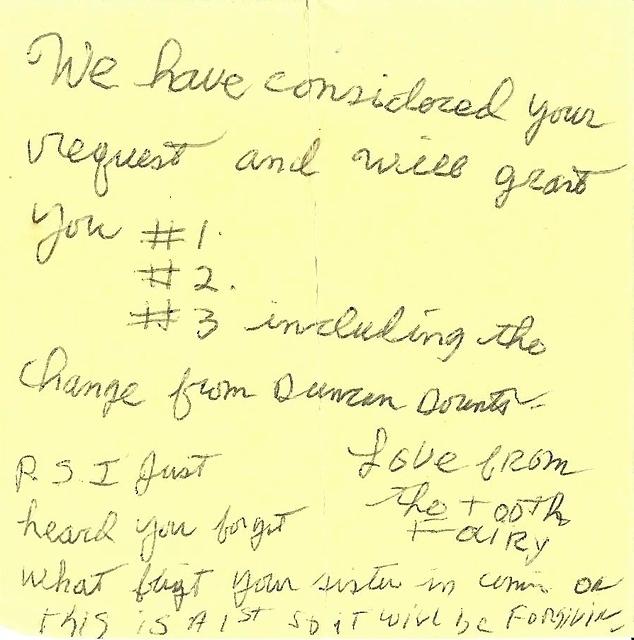 We have considered your
request and will grant
you #1.
#2.
#3 including the
change from Duncan Donuts-
Love from
the Tooth
Fairy
P.S. I Just
heard you forgot
what fligt your sister in comin on
this is A 1st so it will be Forgivin